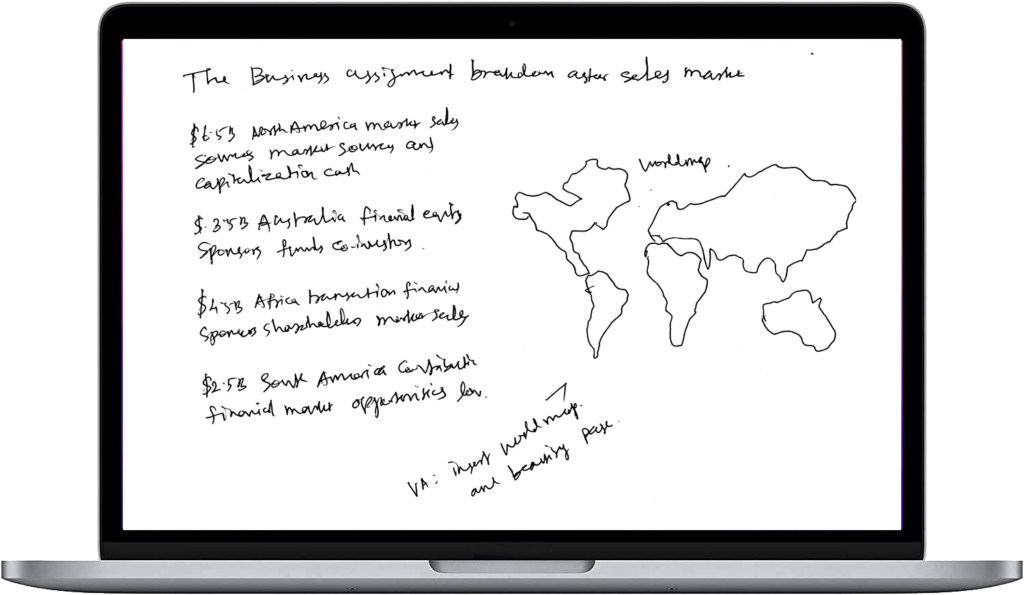 The Business assignment breakdown after sales market
$6.5B North America market sales
sources market sources and
capitalization cash
$.3.5B Australia financial equity
Sponsors funds co-investors.
$4.5B Africa transaction financial
Sponsors shareholders market sales
$2.5B South America Contribution
financial market opportunities low.
worldmap.
VA: insert worldmap.
and beautify page.